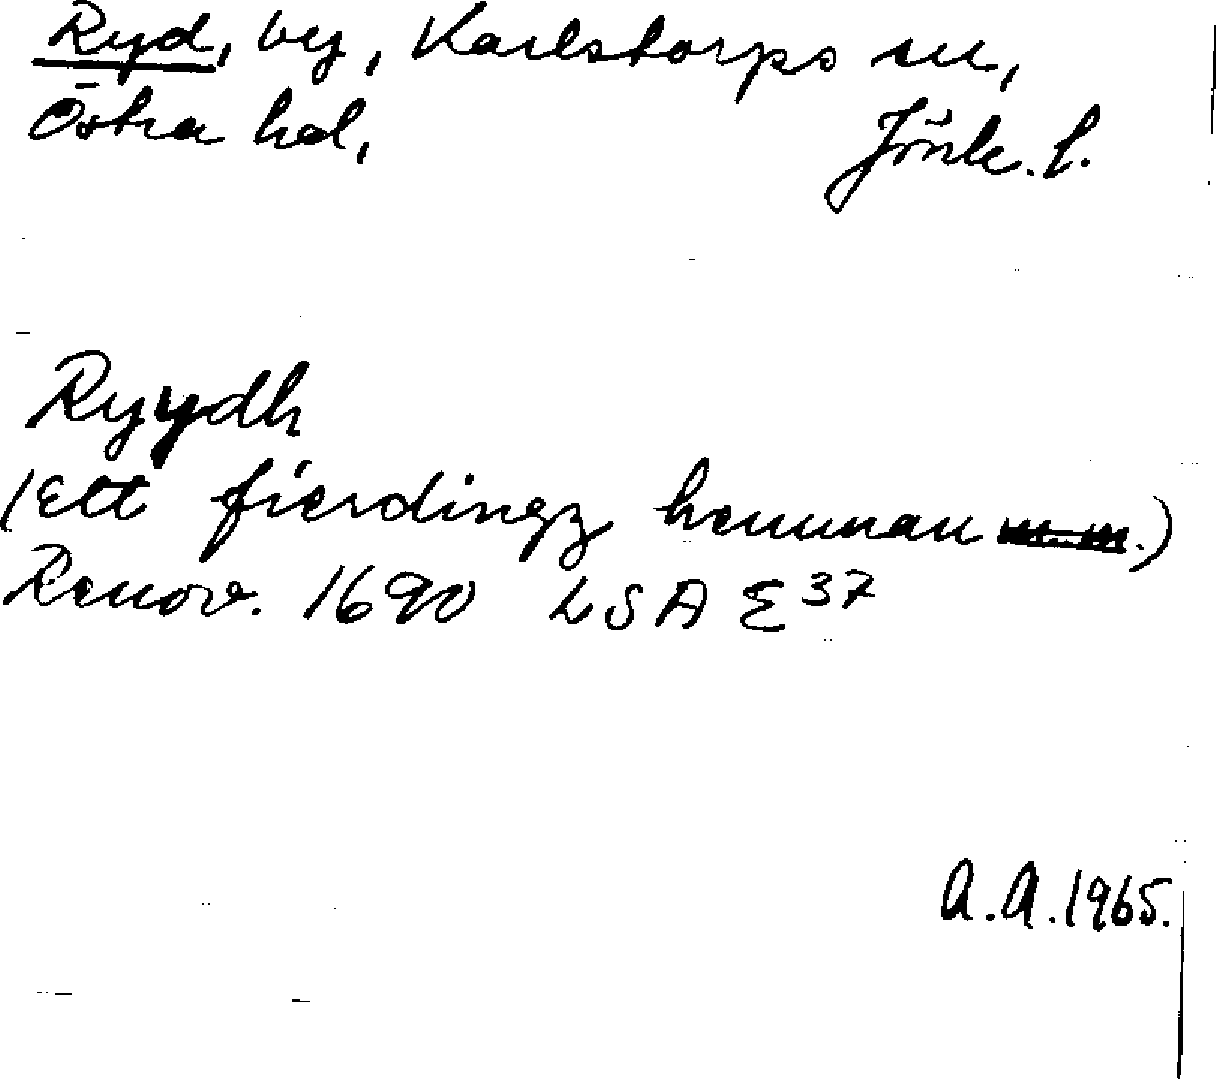 Ryd, by, Karlstorps sn,
Östra hd, Jönk. l.
Ryydh
(Ett fierdingz hemman m.m.)
Renov. 1690 LSA E 37
A.A. 1965.